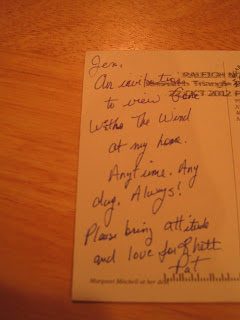 Jen,
An invitation
to view Gone
With The Wind
at my home.
Anytime. Any
day. Always!
Please bring attitude
and love for Rhett
Pat
RALEIGH N
Research Triangle
OCT 2012 P
Margaret Mitchell at her desk